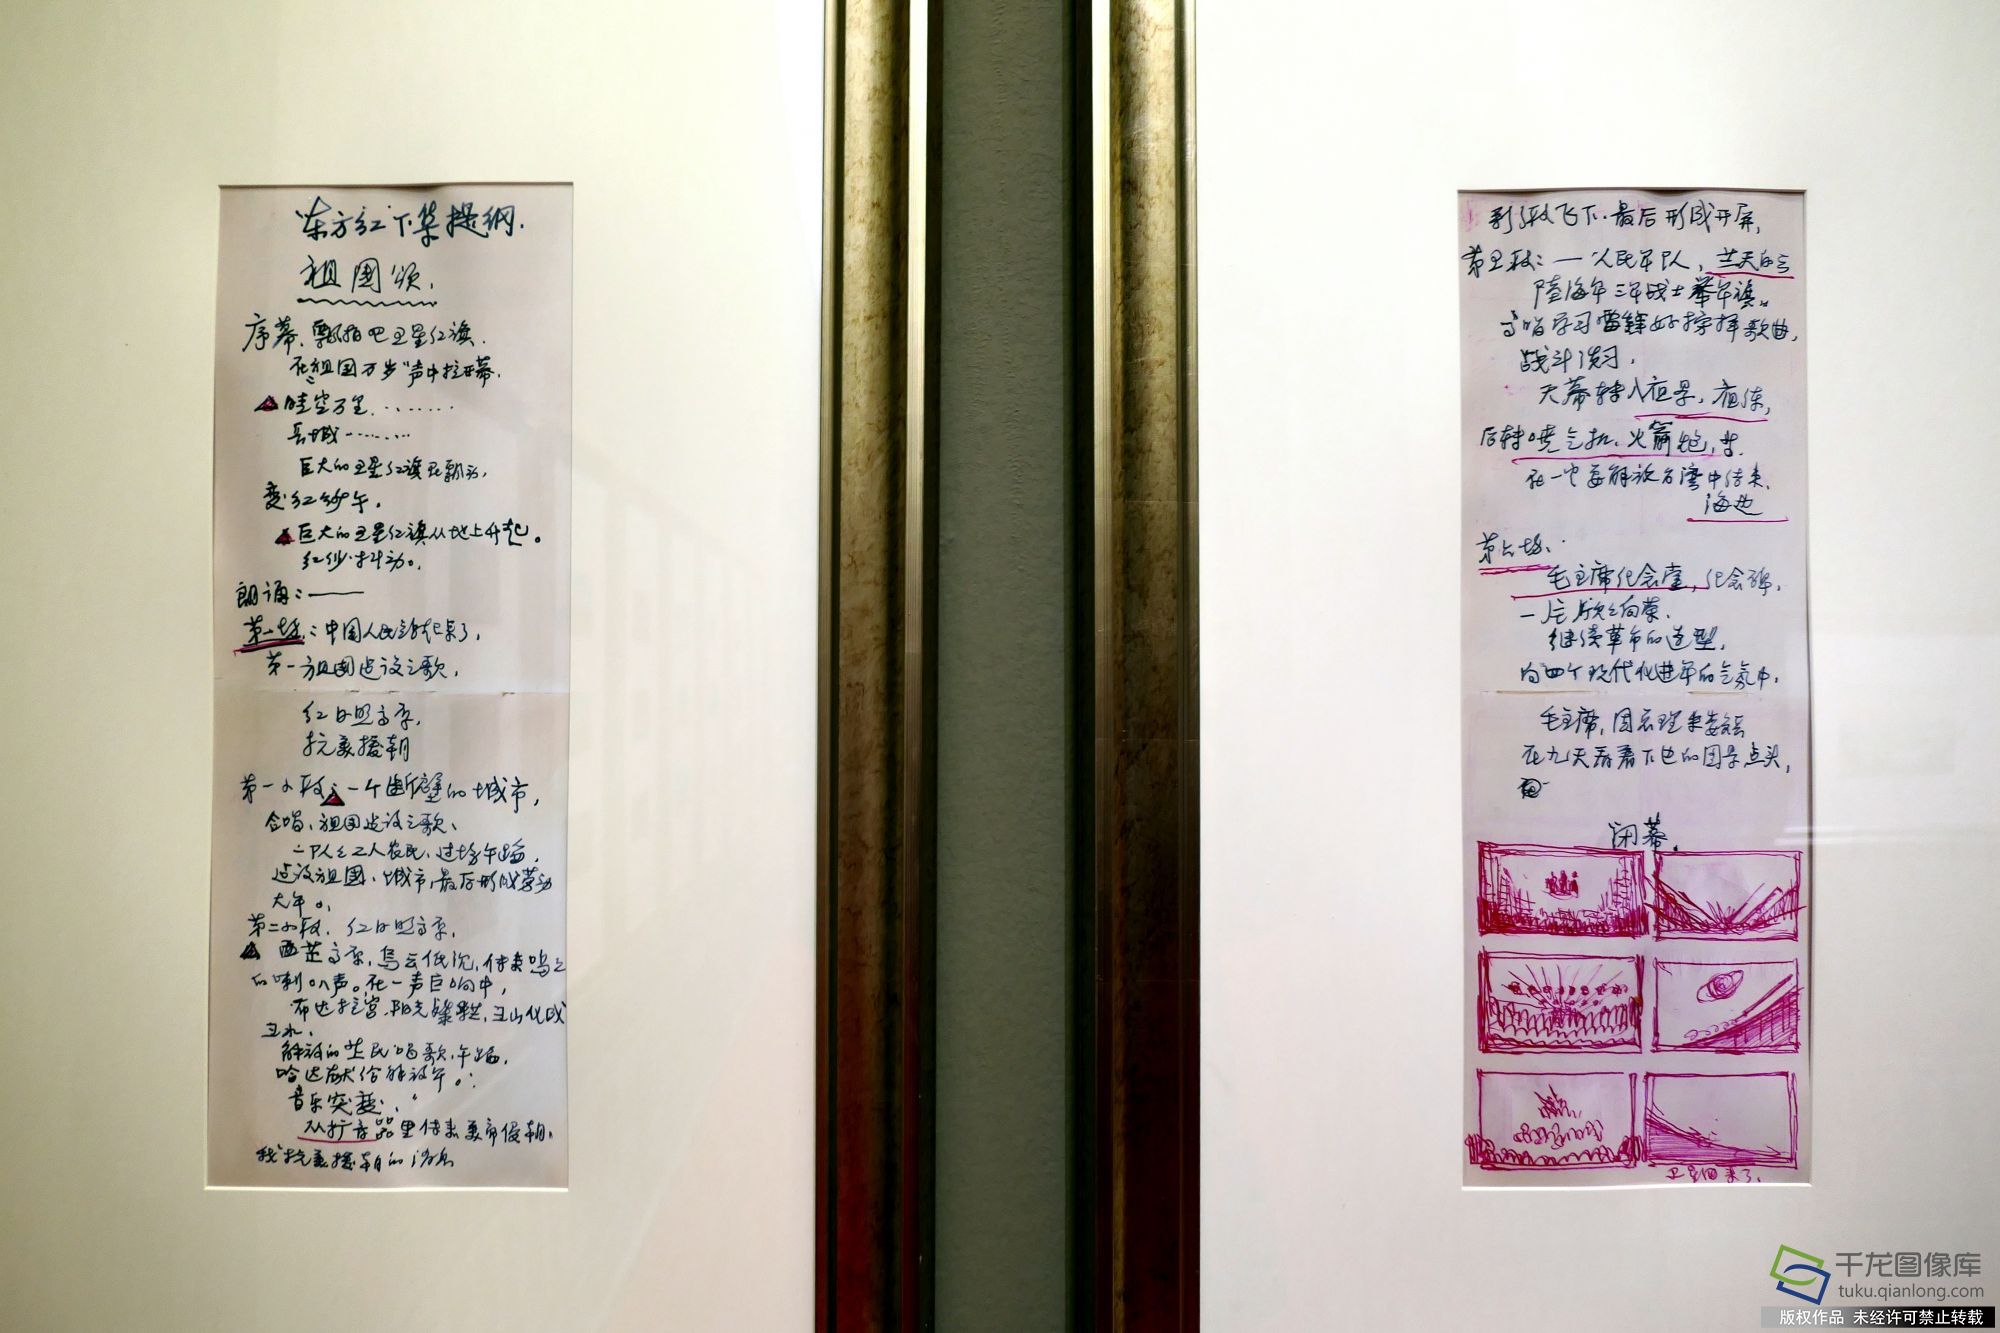 “东方红”下集提纲.
祖国颂.
序幕、飘扬吧五星红旗.
在“祖国万岁”声中拉开幕.
晴空万里.........
长城.........
巨大的五星红旗在飘动,
变红纱午.
巨大的五星红旗从地上升起。
红纱抖动。
朗诵：——
第一场：中国人民站起来了,
第一 祖国建设之歌,
红日照高原,
抗美援朝
第一小段：一个断壁的城市,
合唱、祖国建设之歌、
一队队工人农民、过场午蹈,
建设祖国、城市,最后形成劳动
大军。
第二小段、红日照高原,
西芷高原,乌云低沉,传来呜呜
的喇叭声。在一声巨响中,
布达拉宫,阳光灿烂,玉山化成
玉水,
解放的芷民唱歌,午蹈,
哈达献给解放军。
音乐突变,
从扩音器里传来美帝侵朝,
我抗美援朝的消息
彩裙飞下.最后形成开屏,
第五段：一人民军队,兰天白云
陆海军三军战士举军旗。
高唱学习雷锋好榜样歌曲,
战斗演习,
天幕转入夜景,夜练,
后转喷气机、火箭炮,等.
在一定要解放台湾中结束.
海边
第六场、
毛主席纪念堂,纪念碑,
一片欣欣向荣.
继续革命的造型,
向四个现代化进军的气氛中,
毛主席,周总理朱委员长
在九天看着下边的图景点头,
闭幕.
卫星回来了.
千龙图像库
tuku.qianlong.com
版权作品 未经许可禁止转载